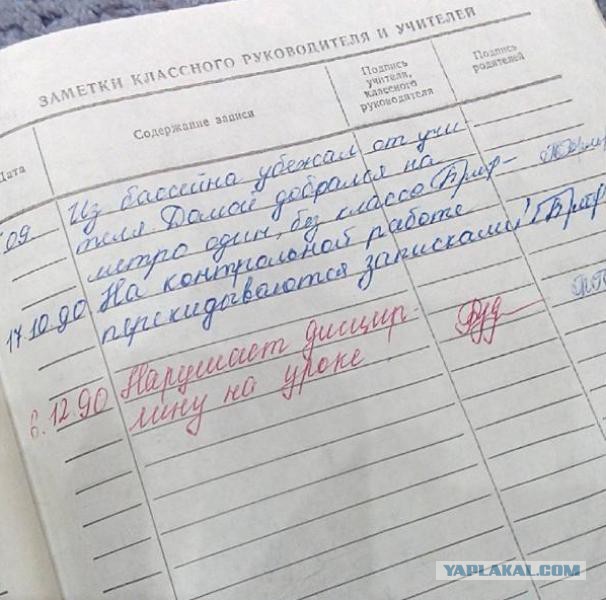 ЗАМЕТКИ КЛАССНОГО РУКОВОДИТЕЛЯ И УЧИТЕЛЕЙ
Дата
Содержание записи
Подпись
учителя,
классного
руководителя
Подпись
родителей
09 Из бассейна убежал от учи
теля. Домой добрался на
метро один, без класса
17.10.90 На контрольной работе
перекидываются записками!
6.12.90 Нарушает дисцип-
лину на уроке
YAPLAKAL.COM